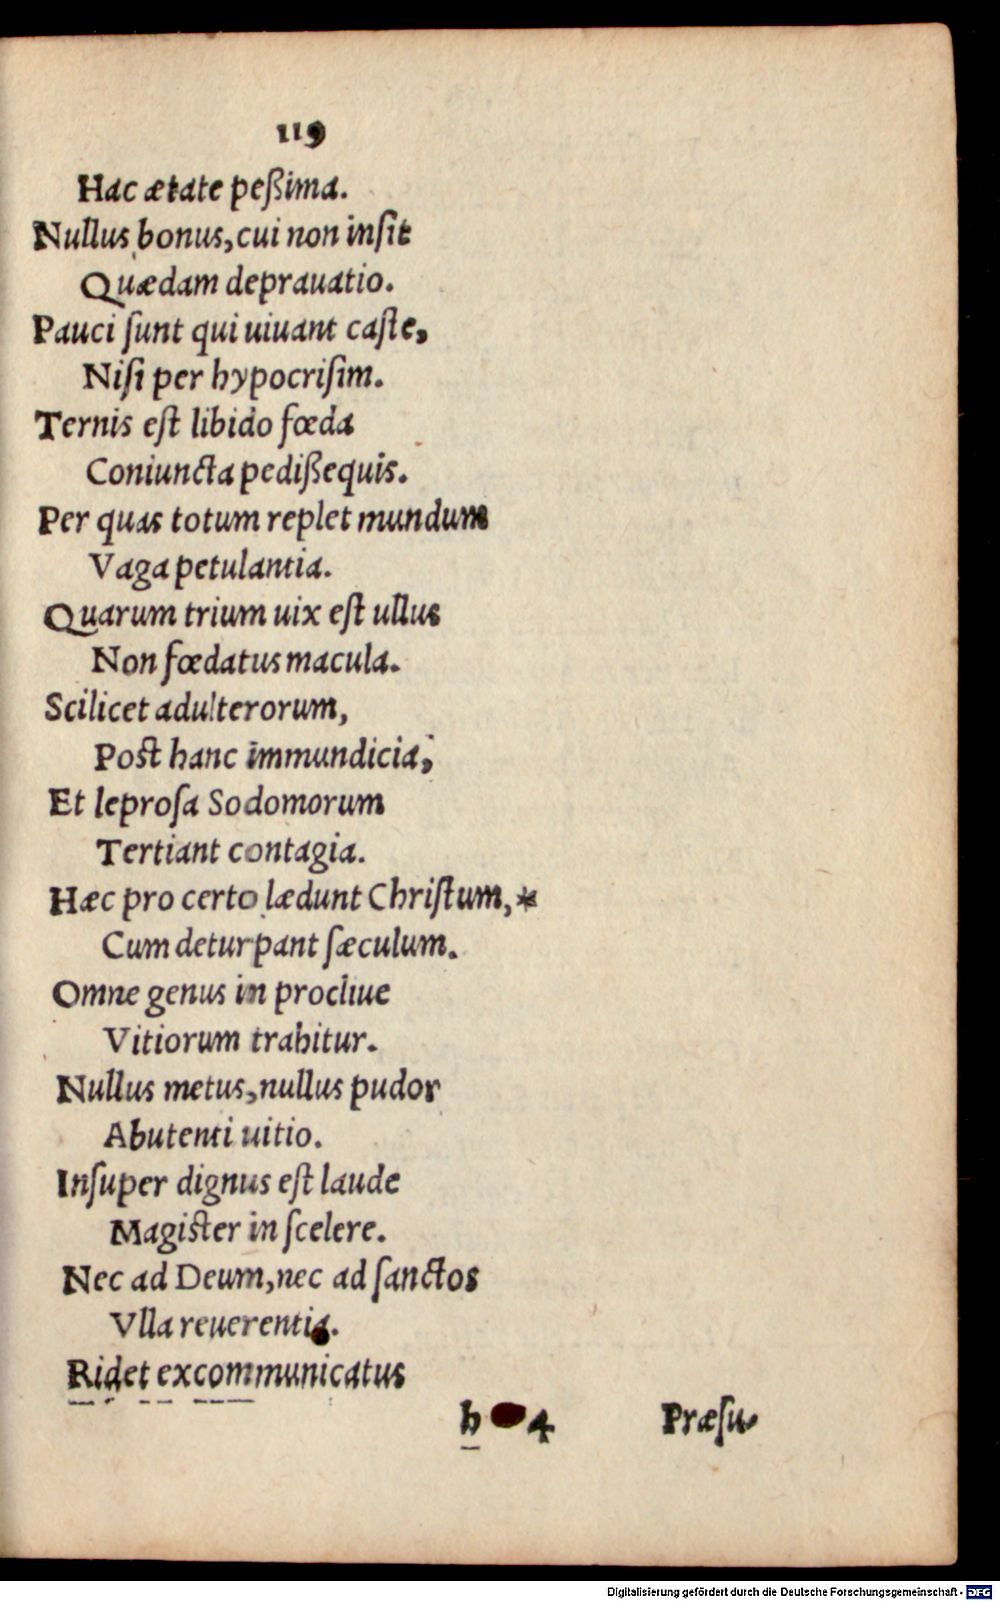 119
Hac ætate peßima.
Nullus bonus, cui non inſit
Quædam deprauatio.
Pauci ſunt qui uiuant caſte,
Niſi per hypocriſim.
Ternis eſt libido fœda
Coniuncta pedißequis.
Per quas totum replet mundum
Vaga petulantia.
Quarum trium uix eſt ullus
Non fœdatus macula.
Scilicet adulterorum,
Poſt hanc immundicia,
Et leproſa Sodomorum
Tertiant contagia.
Hæc pro certo lædunt Chriſtum,*
Cum deturpant ſæculum.
Omne genus in procliue
Vitiorum trahitur.
Nullus metus, nullus pudor
Abutenti uitio.
Inſuper dignus eſt laude
Magiſter in ſcelere.
Nec ad Deum, nec ad ſanctos
Vlla reuerentia.
Ridet excommunicatus
h 4 Præſu-
Digitalisierung gefördert durch die Deutsche Forschungsgemeinschaft - DFG